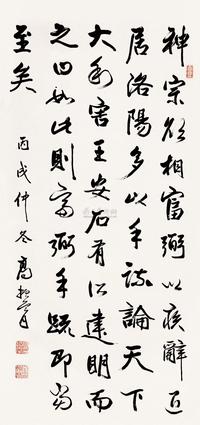 神宗欲相富弼以疾辭退
居洛陽多以手疏論天下
大利害王安石有所建明而
之曰如此則富弼手疏即當
至矣
丙戌仲冬高振霄